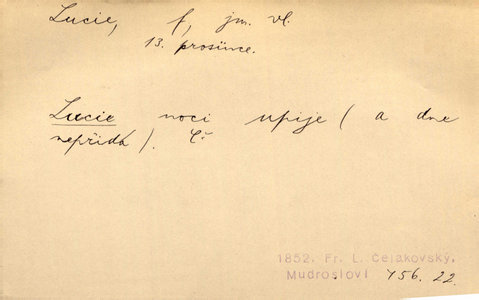 Lucie, f, jm. vl.
13. prosince.
Lucie noci upije (a dne
nepřidá). Č.
1852. Fr. L. Čelakovský,
Mudrosloví 456. 22.